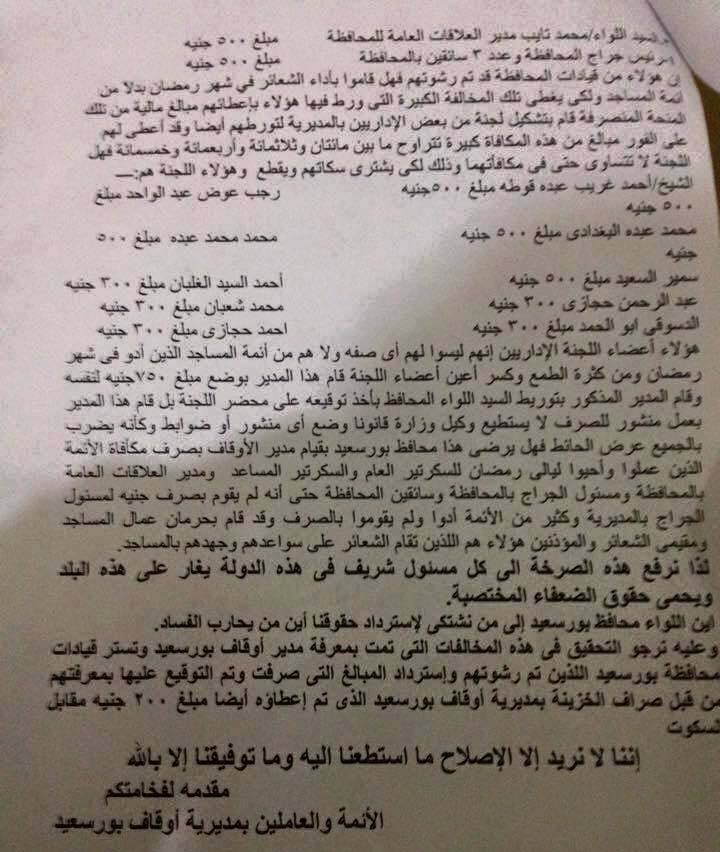 السيد اللواء/محمد تايب مدير العلاقات العامة للمحافظة مبلغ ٥٠٠ جنيه
رئيس جراج المحافظة وعدد ٣ سائقين بالمحافظة مبلغ ٥٠٠ جنيه
إن هؤلاء من قيادات المحافظة قد تم رشوتهم فهل قاموا بأداء الشعائر في شهر رمضان بدلا من
أئمة المساجد ولكى يغطى تلك المخالفة الكبيرة التى ورط فيها هؤلاء بإعطائهم مبالغ مالية من تلك
المنحة المنصرفة قام بتشكيل لجنة من بعض الإداريين بالمديرية لتورطهم أيضا وقد أعطى لهم
على الفور مبالغ من هذه المكافاة كبيرة تتراوح ما بين مائتان وثلاثمائة وأربعمائة وخمسمائة فهل
اللجنة لا تتساوى حتى فى مكافأتهما وذلك لكى يشترى سكاتهم ويقطع وهؤلاء اللجنة هم:ــ
الشيخ/أحمد غريب عبده قوطه مبلغ ٥٠٠جنيه رجب عوض عبد الواحد مبلغ
٥٠٠ جنيه
محمد عبده البغدادى مبلغ ٥٠٠ جنيه محمد محمد عبده مبلغ ٥٠٠
جنيه
سمير السعيد مبلغ ٥٠٠ جنيه أحمد السيد الغلبان مبلغ ٣٠٠ جنيه
عبد الرحمن حجازى ٣٠٠ جنيه محمد شعبان مبلغ ٣٠٠ جنيه
الدسوقى ابو الحمد مبلغ ٣٠٠ جنيه احمد حجازى مبلغ ٣٠٠ جنيه
هؤلاء أعضاء اللجنة الإداريين إنهم ليسوا لهم أى صفه ولا هم من أئمة المساجد الذين أدو فى شهر
رمضان ومن كثرة الطمع وكسر أعين أعضاء اللجنة قام هذا المدير بوضع مبلغ ٧٥٠جنيه لنفسه
وقام المدير المذكور بتوريط السيد اللواء المحافظ بأخذ توقيعه على محضر اللجنة بل قام هذا المدير
بعمل منشور للصرف لا يستطيع وكيل وزارة قانونا وضع أى منشور أو ضوابط وكأنه يضرب
بالجميع عرض الحائط فهل يرضى هذا محافظ بورسعيد بقيام مدير الأوقاف بصرف مكافأة الأئمة
الذين عملوا وأحيوا ليالى رمضان للسكرتير العام والسكرتير المساعد ومدير العلاقات العامة
بالمحافظة ومسئول الجراج بالمحافظة وسائقين المحافظة حتى أنه لم يقوم بصرف جنيه لمسئول
الجراج بالمديرية وكثير من الأئمة أدوا ولم يقوموا بالصرف وقد قام بحرمان عمال المساجد
ومقيمى الشعائر والمؤذنين هؤلاء هم اللذين تقام الشعائر على سواعدهم وجهدهم بالمساجد.
لذا نرفع هذه الصرخة الى كل مسئول شريف فى هذه الدولة يغار على هذه البلد
ويحمى حقوق الضعفاء المختصبة.
اين اللواء محافظ بورسعيد إلى من نشتكى لإسترداد حقوقنا أين من يحارب الفساد.
وعليه نرجو التحقيق فى هذه المخالفات التى تمت بمعرفة مدير أوقاف بورسعيد وتستر قيادات
محافظة بورسعيد اللذين تم رشوتهم وإسترداد المبالغ التى صرفت وتم التوقيع عليها بمعرفتهم
من قبل صراف الخزينة بمديرية أوقاف بورسعيد الذى تم إعطاؤه أيضا مبلغ ٢٠٠ جنيه مقابل
السكوت
إننا لا نريد إلا الإصلاح ما استطعنا اليه وما توفيقنا إلا بالله
مقدمه لفخامتكم
الأئمة والعاملين بمديرية أوقاف بورسعيد